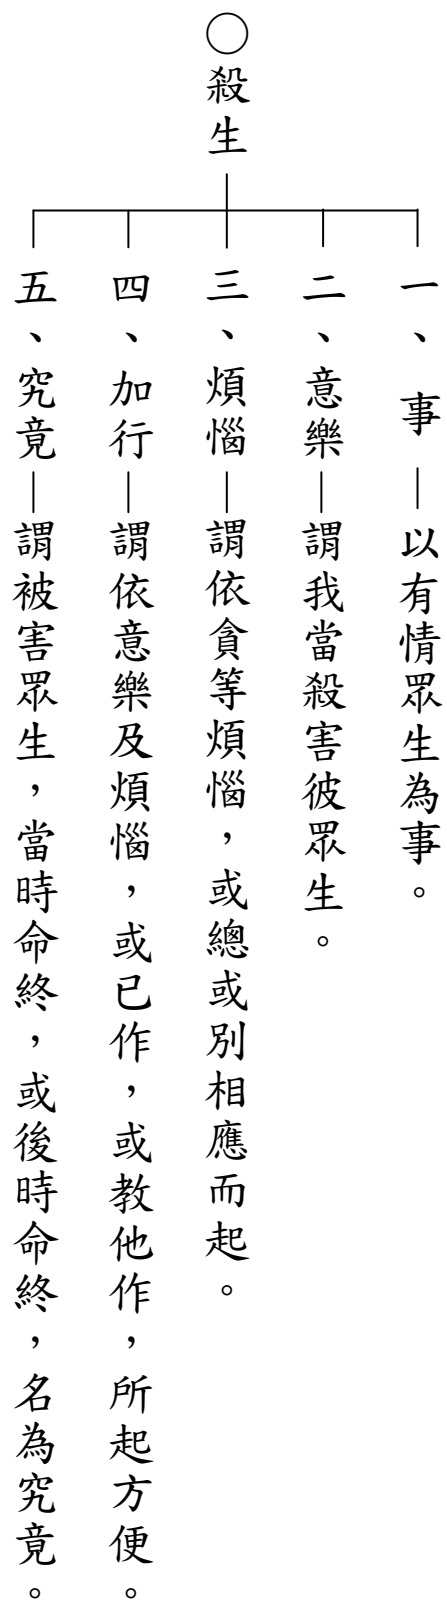 ○殺生
一、事—以有情眾生為事。
二、意樂—謂我當殺害彼眾生。
三、煩惱—謂依貪等煩惱，或總或別相應而起。
四、加行—謂依意樂及煩惱，或已作，或教他作，所起方便。
五、究竟—謂被害眾生，當時命終，或後時命終，名為究竟。